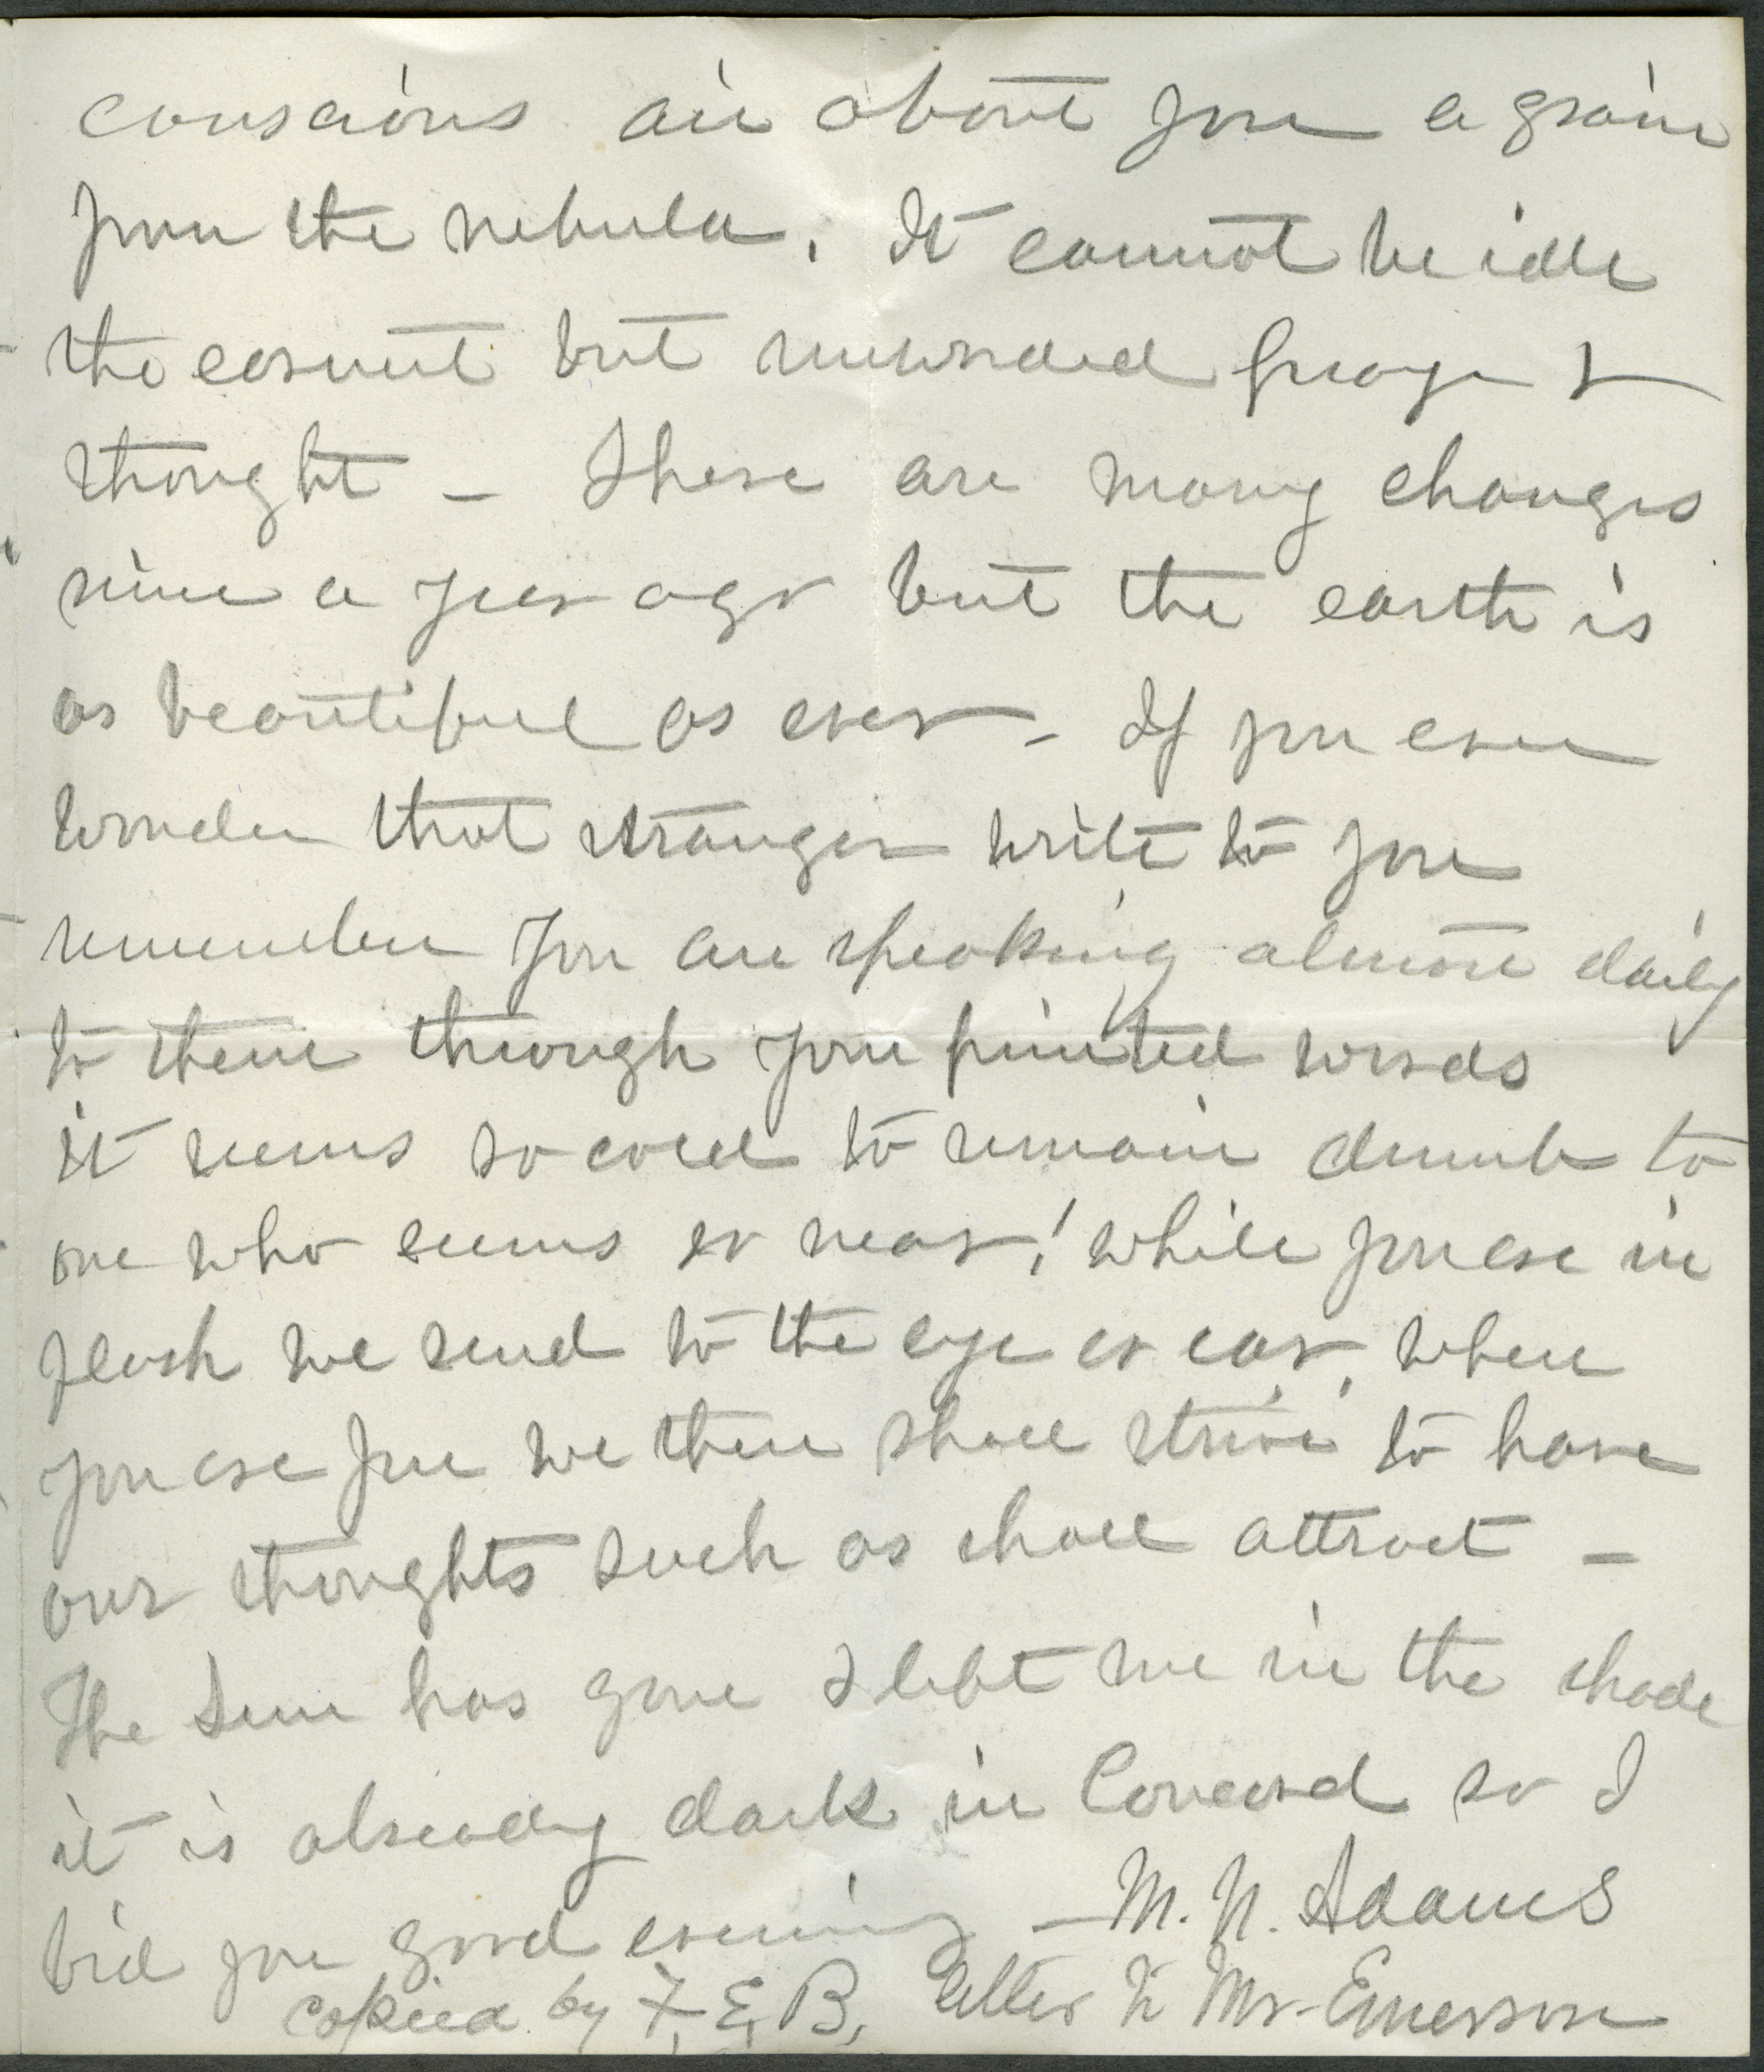 conscious air about you a grain
from the nebula. It cannot be idle
the earnest but unworded prayer &
thought - There are many changes
since a year ago but the earth is
as beautiful as ever - If you ever
wonder that strangers write to you
remember you are speaking almost daily
to them through your printed words
it seems so cold to remain dumb to
one who seems so near! while you are in
flesh we send to the eye or ear, when
you are free we then shall strive to have
our thoughts such as shall attract -
The Sun has gone & left me in the shade
it is already dark in Concord so I
bid you good evening - M. N. Adams
copied by F. E. B. letter to Mr. Emerson